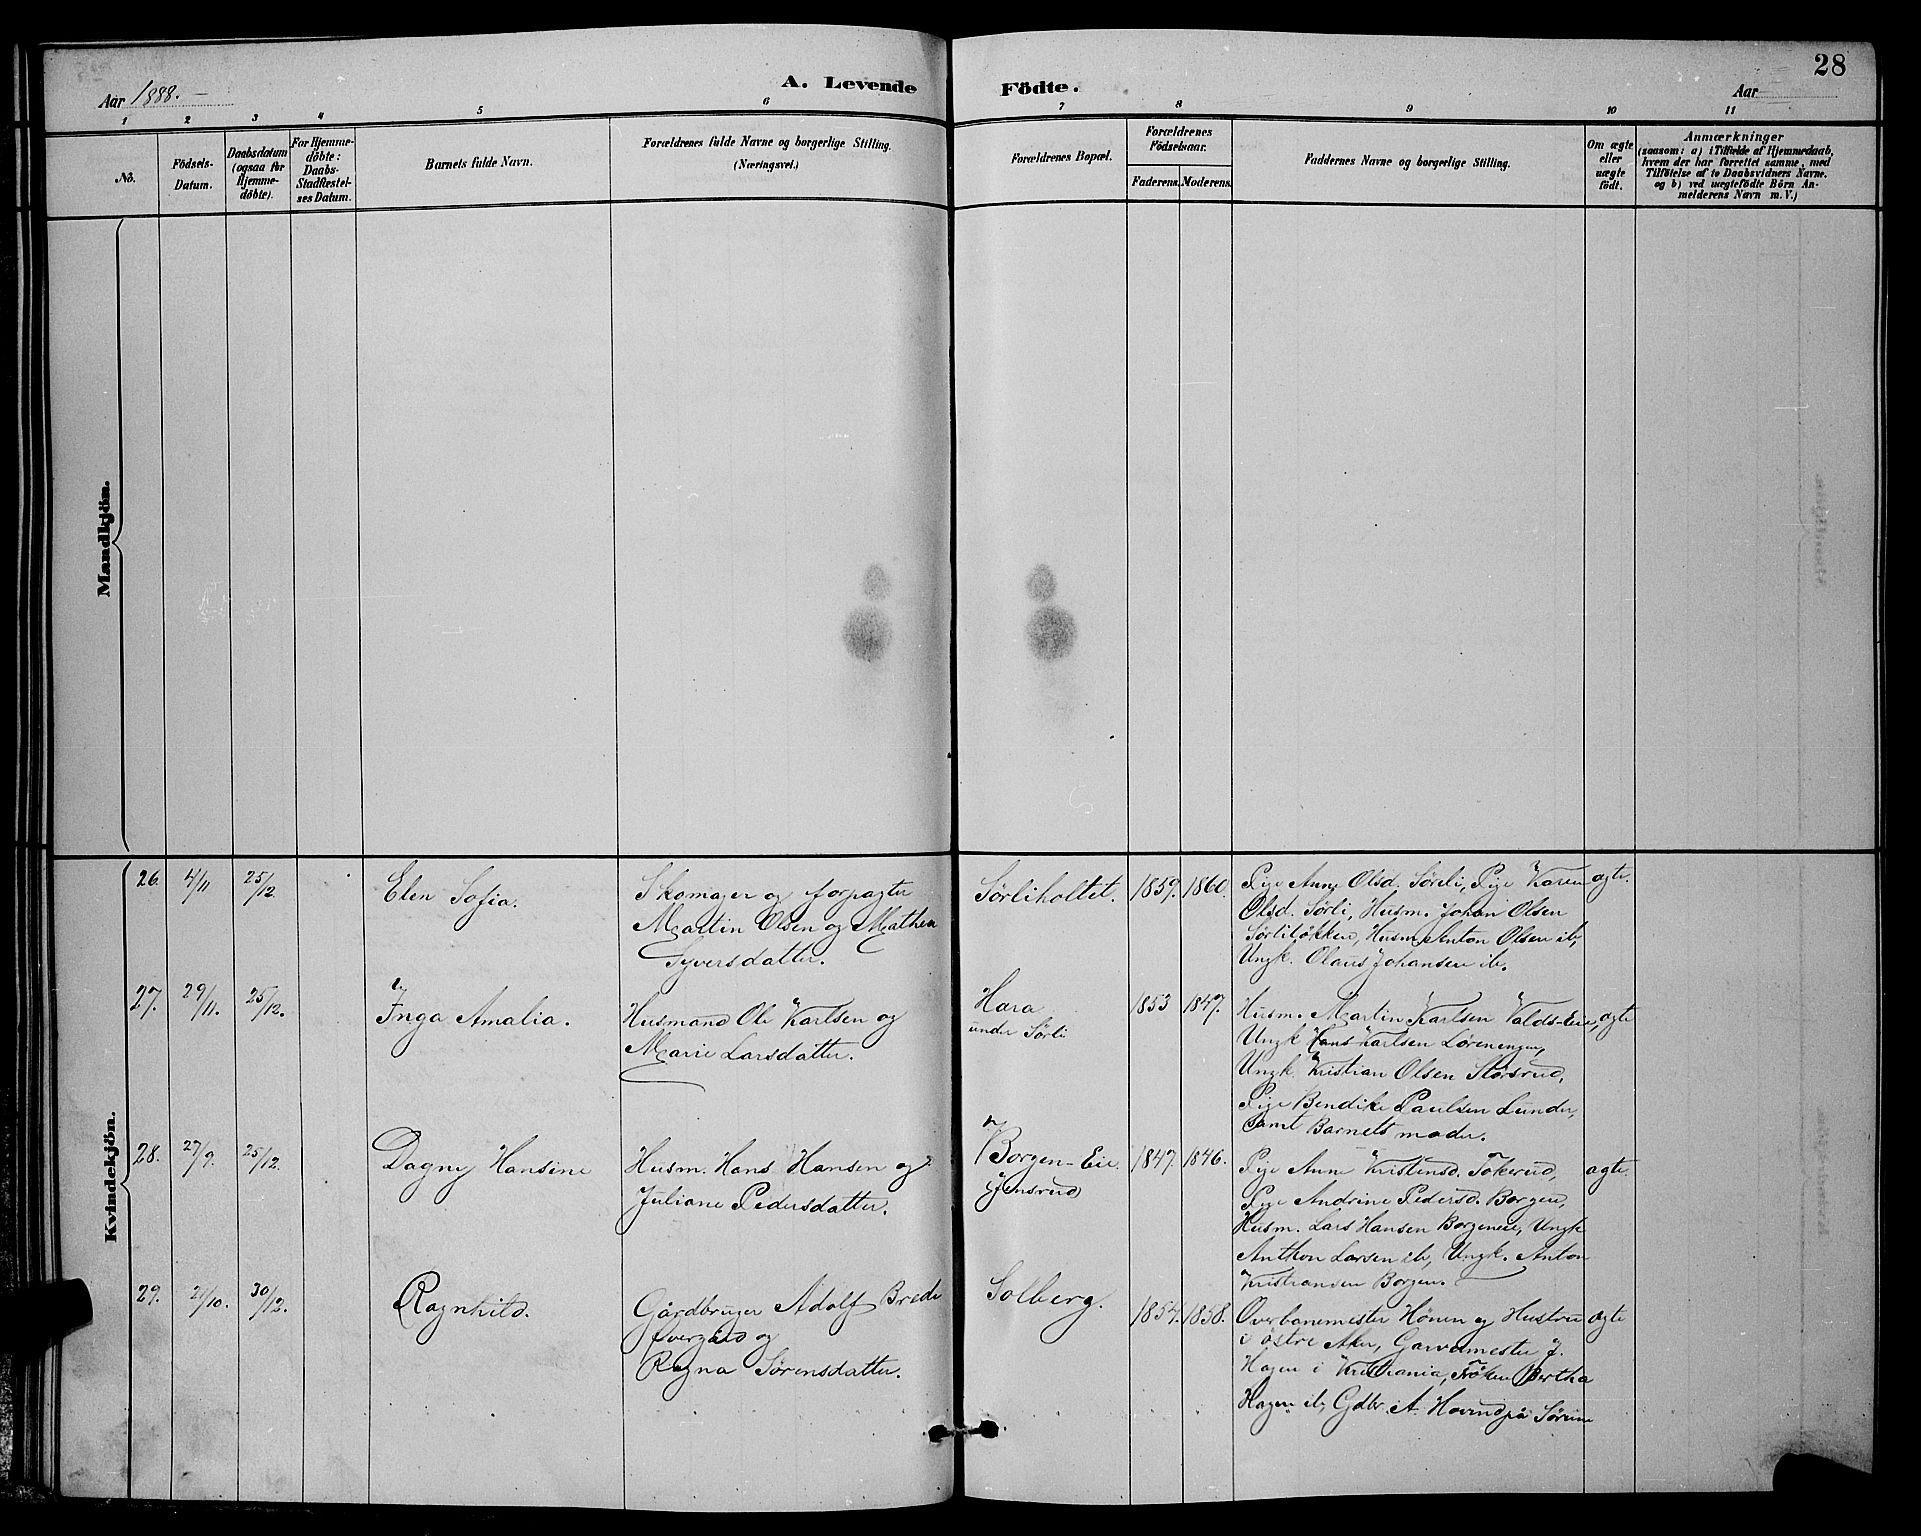 28
Aar 1888.
A. Levende Födte.
Aar
1 2 3 4 5 6 7 8 9 10 11
No.
Födsels-
Datum.
Daabsdatum
(ogsaa for
Hjemme-
döbte).
For Hjemme-
döbte:
Daabs-
Stadfæstel-
ses Datum.
Barnets fulde Navn.
Forældrenes fulde Navne og borgerlige Stilling.
(Næringsvei.)
Forældrenes Bopæl.
Forældrenes
Födselsaar.
Faderens. Moderens.
Faddernes Navne og borgerlige Stilling.
Om ægte
eller
uægte
födt.
Anmærkninger
(saasom: a) i Tilfælde af Hjemmedaab,
hvem der har forrettet samme, med
Tilföielse af to Daabsvidners Navne,
og b) ved uægtefödte Börn An-
melderens Navn m. V.)
Mandkjön.
Kvindekjön.
26. 4/11 25/12.
Elen Sofia.
Skomager og forpagter
Martin Olsen og Mathea
Syversdatter.
Sørliholtet.
1859. 1860.
Pige Anne Olsd. Sørli, Pige Karen
Olsd. Sørli, Husm. Johan Olsen
Sørliløkken, Husm. Anton Olsen ib,
Ungk. Olaus Johansen ib.
ægte.
27. 29/11. 25/12.
Inga Amalia.
Husmand Ole Karlsen og
Marie Larsdatter.
Hara
under Sørli
1853 1847.
Husm. Martin Karlsen Valds-Eie,
Ungk Hans Karlsen Lørenengen,
Ungk. Kristian Olsen Storsrud,
Pige Bendike Paulsen Lunder,
samt Barnets moder.
ægte
28. 27/9. 25/12.
Dagny Hansine
Husm. Hans Hansen og
Juliane Pedersdatter.
Borgen-Eie
Jensrud
1847. 1846.
Pige Anne Kristensd. Tokerud,
Pige Andrine Pedersd. Borgen,
Husm. Lars Hansen Borgeneie, Ungk
Anthon Larsen ib, Ungk. Anton
Kristiansen Borgen.
ægte.
29. 2/10. 30/12.
Ragnhild.
Gårdbruger Adolf Brede
og
Ragna Sørensdatter.
Solberg.
1854. 1858.
Overbanemester Hönen og Hustru
i østre Aker, Garvermester J.
Hagen i Kristiania, Frøken Bertha
Hagen ib, Gdbr. A. Hovind på Sørum
ægte